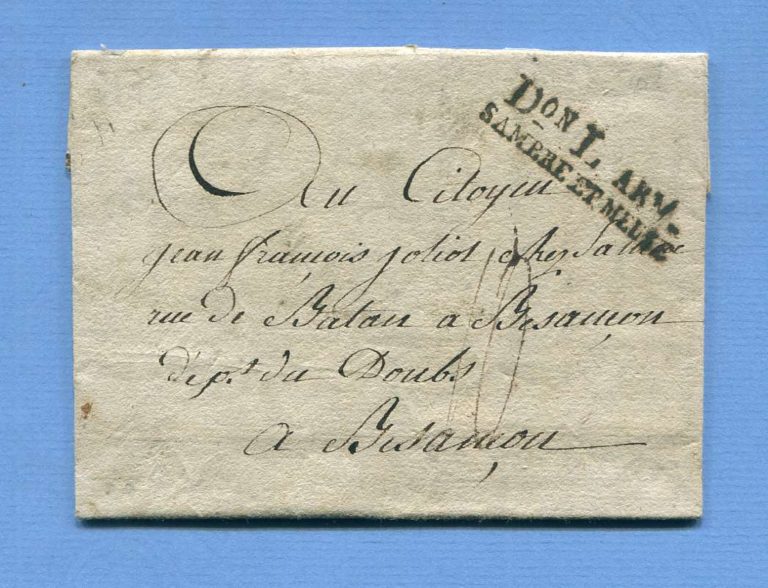 Don L. ARM.
SAMBRE ET MEUSE
Au Citoyen
jean françois joliot chez
rue de Batan a Besançon
dép.t du Doubs
a Besançon